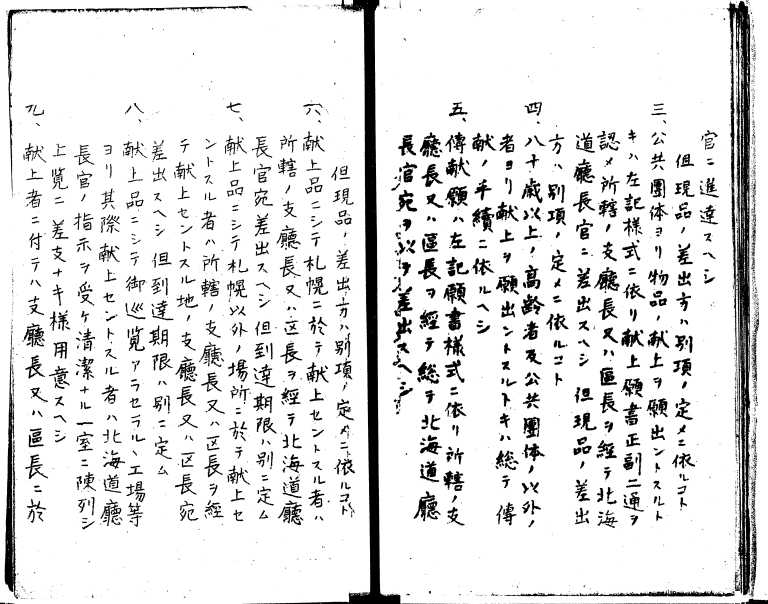 官ニ進達スヘシ
但現品ノ差出方ハ別項ノ定メニ依ルコト
三、公共團体ヨリ物品ノ献上ヲ願出ントスルト
キハ左記様式ニ依リ献上願書正副二通ヲ
認メ所轄ノ支廳長又ハ區長ヲ経テ北海
道廳長官ニ差出スヘシ 但現品ノ差出
方ハ別項ノ定メニ依ルコト
四、八十歳以上ノ高齢者及公共團体ノ以外ノ
者ヨリ献上ヲ願出ントスルトキハ総テ傳
献ノ手續ニ依ルヘシ
五、傳献願ハ左記願書様式ニ依リ所轄ノ支
廳長又ハ區長ヲ経テ総テ北海道廳
長官宛ヲ以テ差出スヘシ
但現品ノ差出方ハ別項ノ定メニ依ルコト
六、献上品ニシテ札幌ニ於テ献上セントスル者ハ
所轄ノ支廳長又ハ区長ヲ経テ北海道廳
長官宛差出スヘシ但到達期限ハ別ニ定ム
七、献上品ニシテ札幌以外ノ場所ニ於テ献上セ
ントスル者ハ所轄ノ支廳長又ハ区長ヲ経
テ献上セントスル地ノ支廳長又ハ区長宛
差出スヘシ但到達期限ハ別ニ定ム
八、献上品ニシテ御巡覧アラセラルヽ工場等
ヨリ其際献上セントスル者ハ北海道廳
長官ノ指示ヲ受ケ清潔ナル一室ニ陳列シ
上覧ニ差支ナキ様用意スヘシ
九、献上者ニ付テハ支廳長又ハ區長ニ於